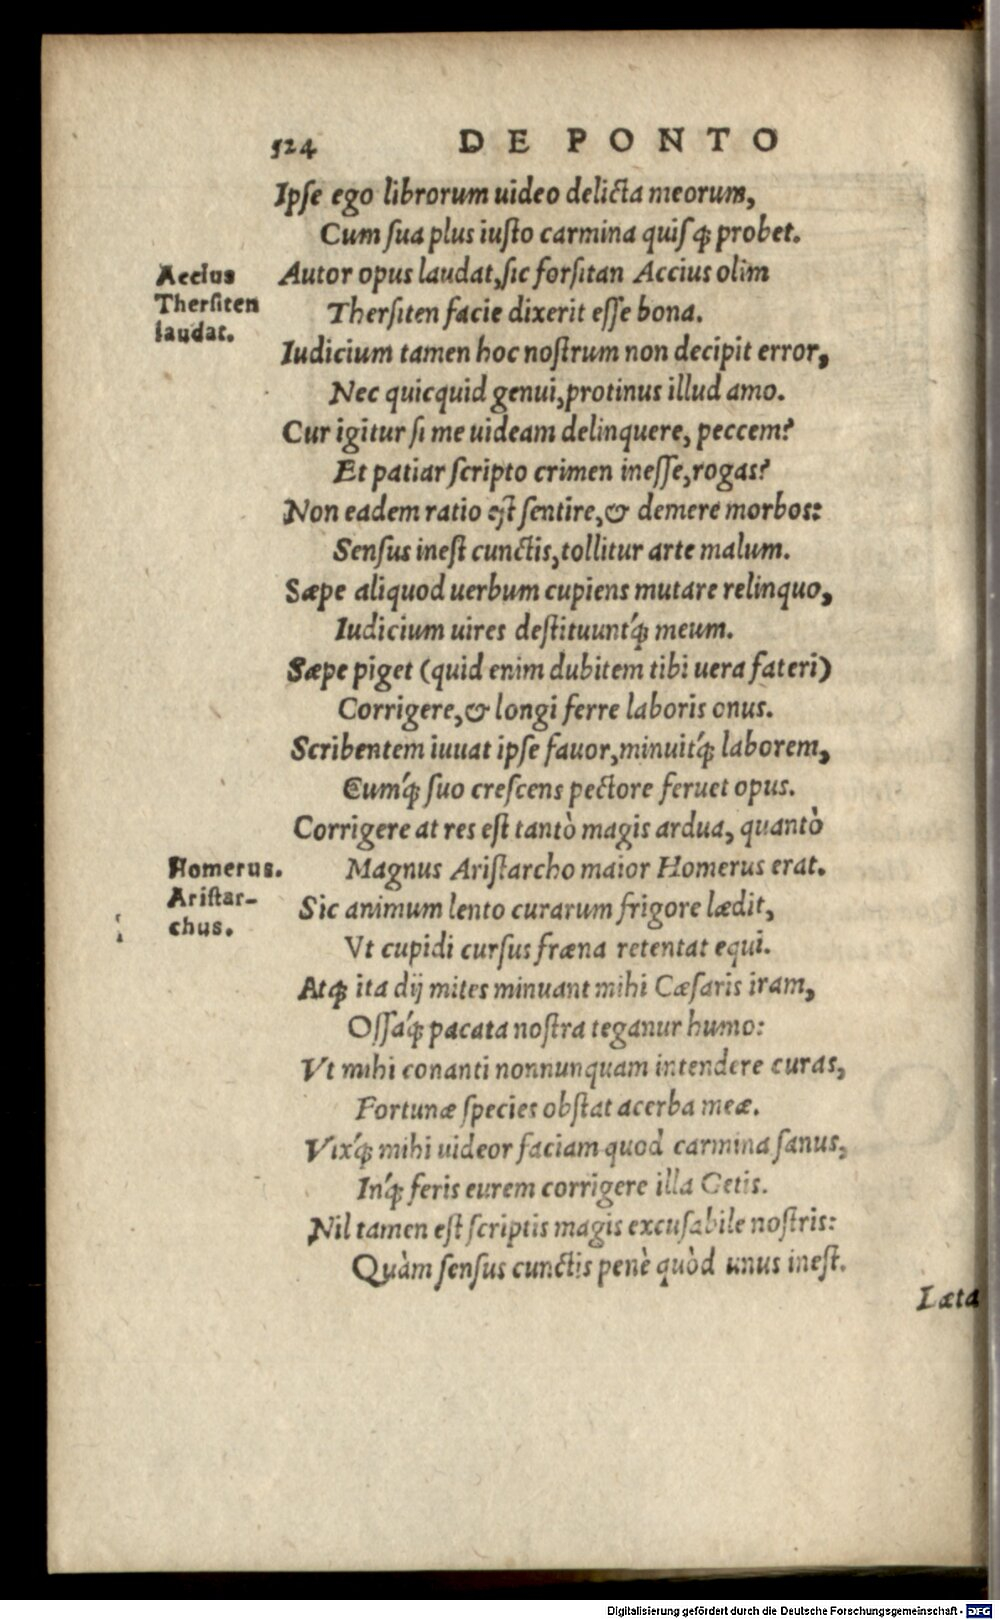 524 DE PONTO
Ipſe ego librorum uideo delicta meorum,
Cum ſua plus iuſto carmina quiſq; probet.
Accius
Therſiten
laudat.
Autor opus laudat, ſic forſitan Accius olim
Therſiten facie dixerit eſſe bona.
Iudicium tamen hoc noſtrum non decipit error,
Nec quicquid genui, protinus illud amo.
Cur igitur ſi me uideam delinquere, peccem?
Et patiar ſcripto crimen ineſſe, rogas?
Non eadem ratio eſt ſentire, & demere morbos:
Senſus ineſt cunctis, tollitur arte malum.
Sæpe aliquod uerbum cupiens mutare relinquo,
Iudicium uires deſtituunt'q; meum.
Sæpe piget (quid enim dubitem tibi uera fateri)
Corrigere, & longi ferre laboris onus.
Scribentem iuuat ipſe fauor, minuit'q; laborem,
Cum'q; ſuo creſcens pectore feruet opus.
Corrigere at res eſt tantò magis ardua, quantò
Homerus.
Ariſtar-
chus.
Magnus Ariſtarcho maior Homerus erat.
Sic animum lento curarum frigore lædit,
Vt cupidi curſus fræna retentat equi.
Atq; ita dij mites minuant mihi Cæſaris iram,
Oſſa'q; pacata noſtra tegantur humo:
Vt mihi conanti nonnunquam intendere curas,
Fortunæ ſpecies obſtat acerba meæ.
Vix'q; mihi uideor faciam quod carmina ſanus,
In'q; feris curem corrigere illa Getis.
Nil tamen eſt ſcriptis magis excuſabile noſtris:
Quàm ſenſus cunctis penè quòd unus ineſt.
Læta
Digitalisierung gefördert durch die Deutsche Forschungsgemeinschaft - DFG